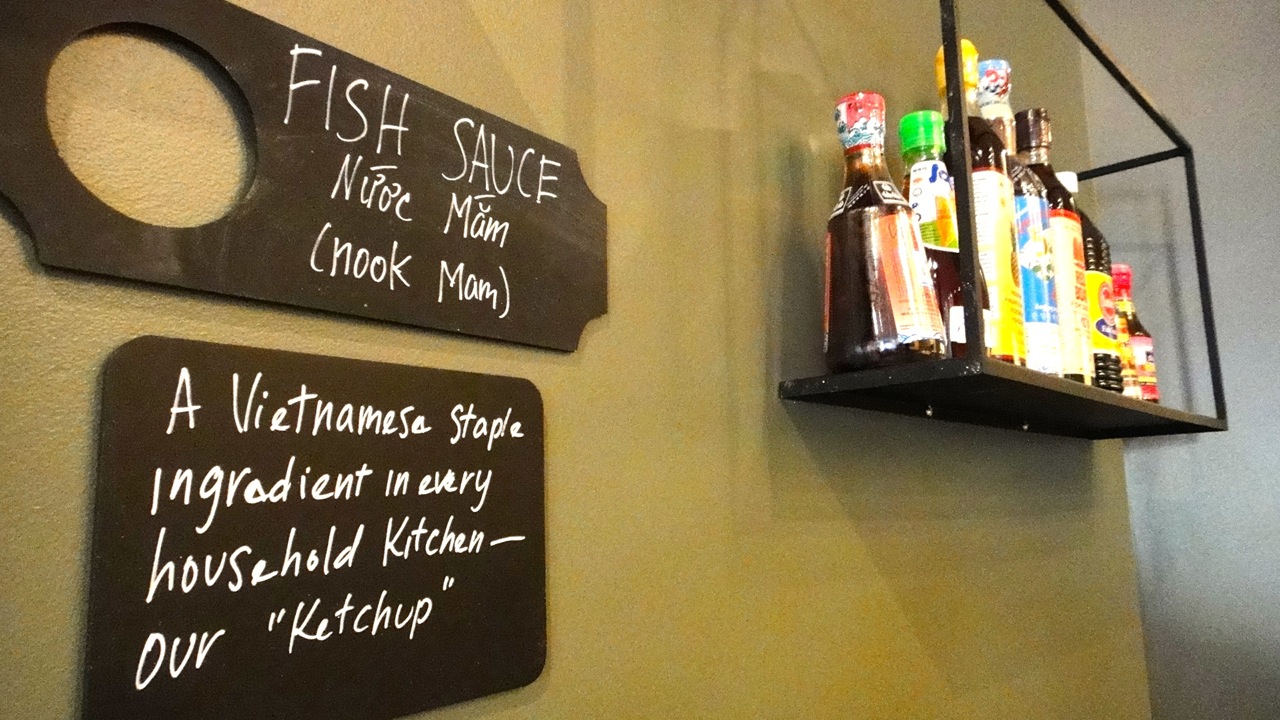 FISH SAUCE
Nước Mắm
(nook Mam)
A Vietnamese Staple
ingredient in every
household Kitchen—
our "Ketchup"